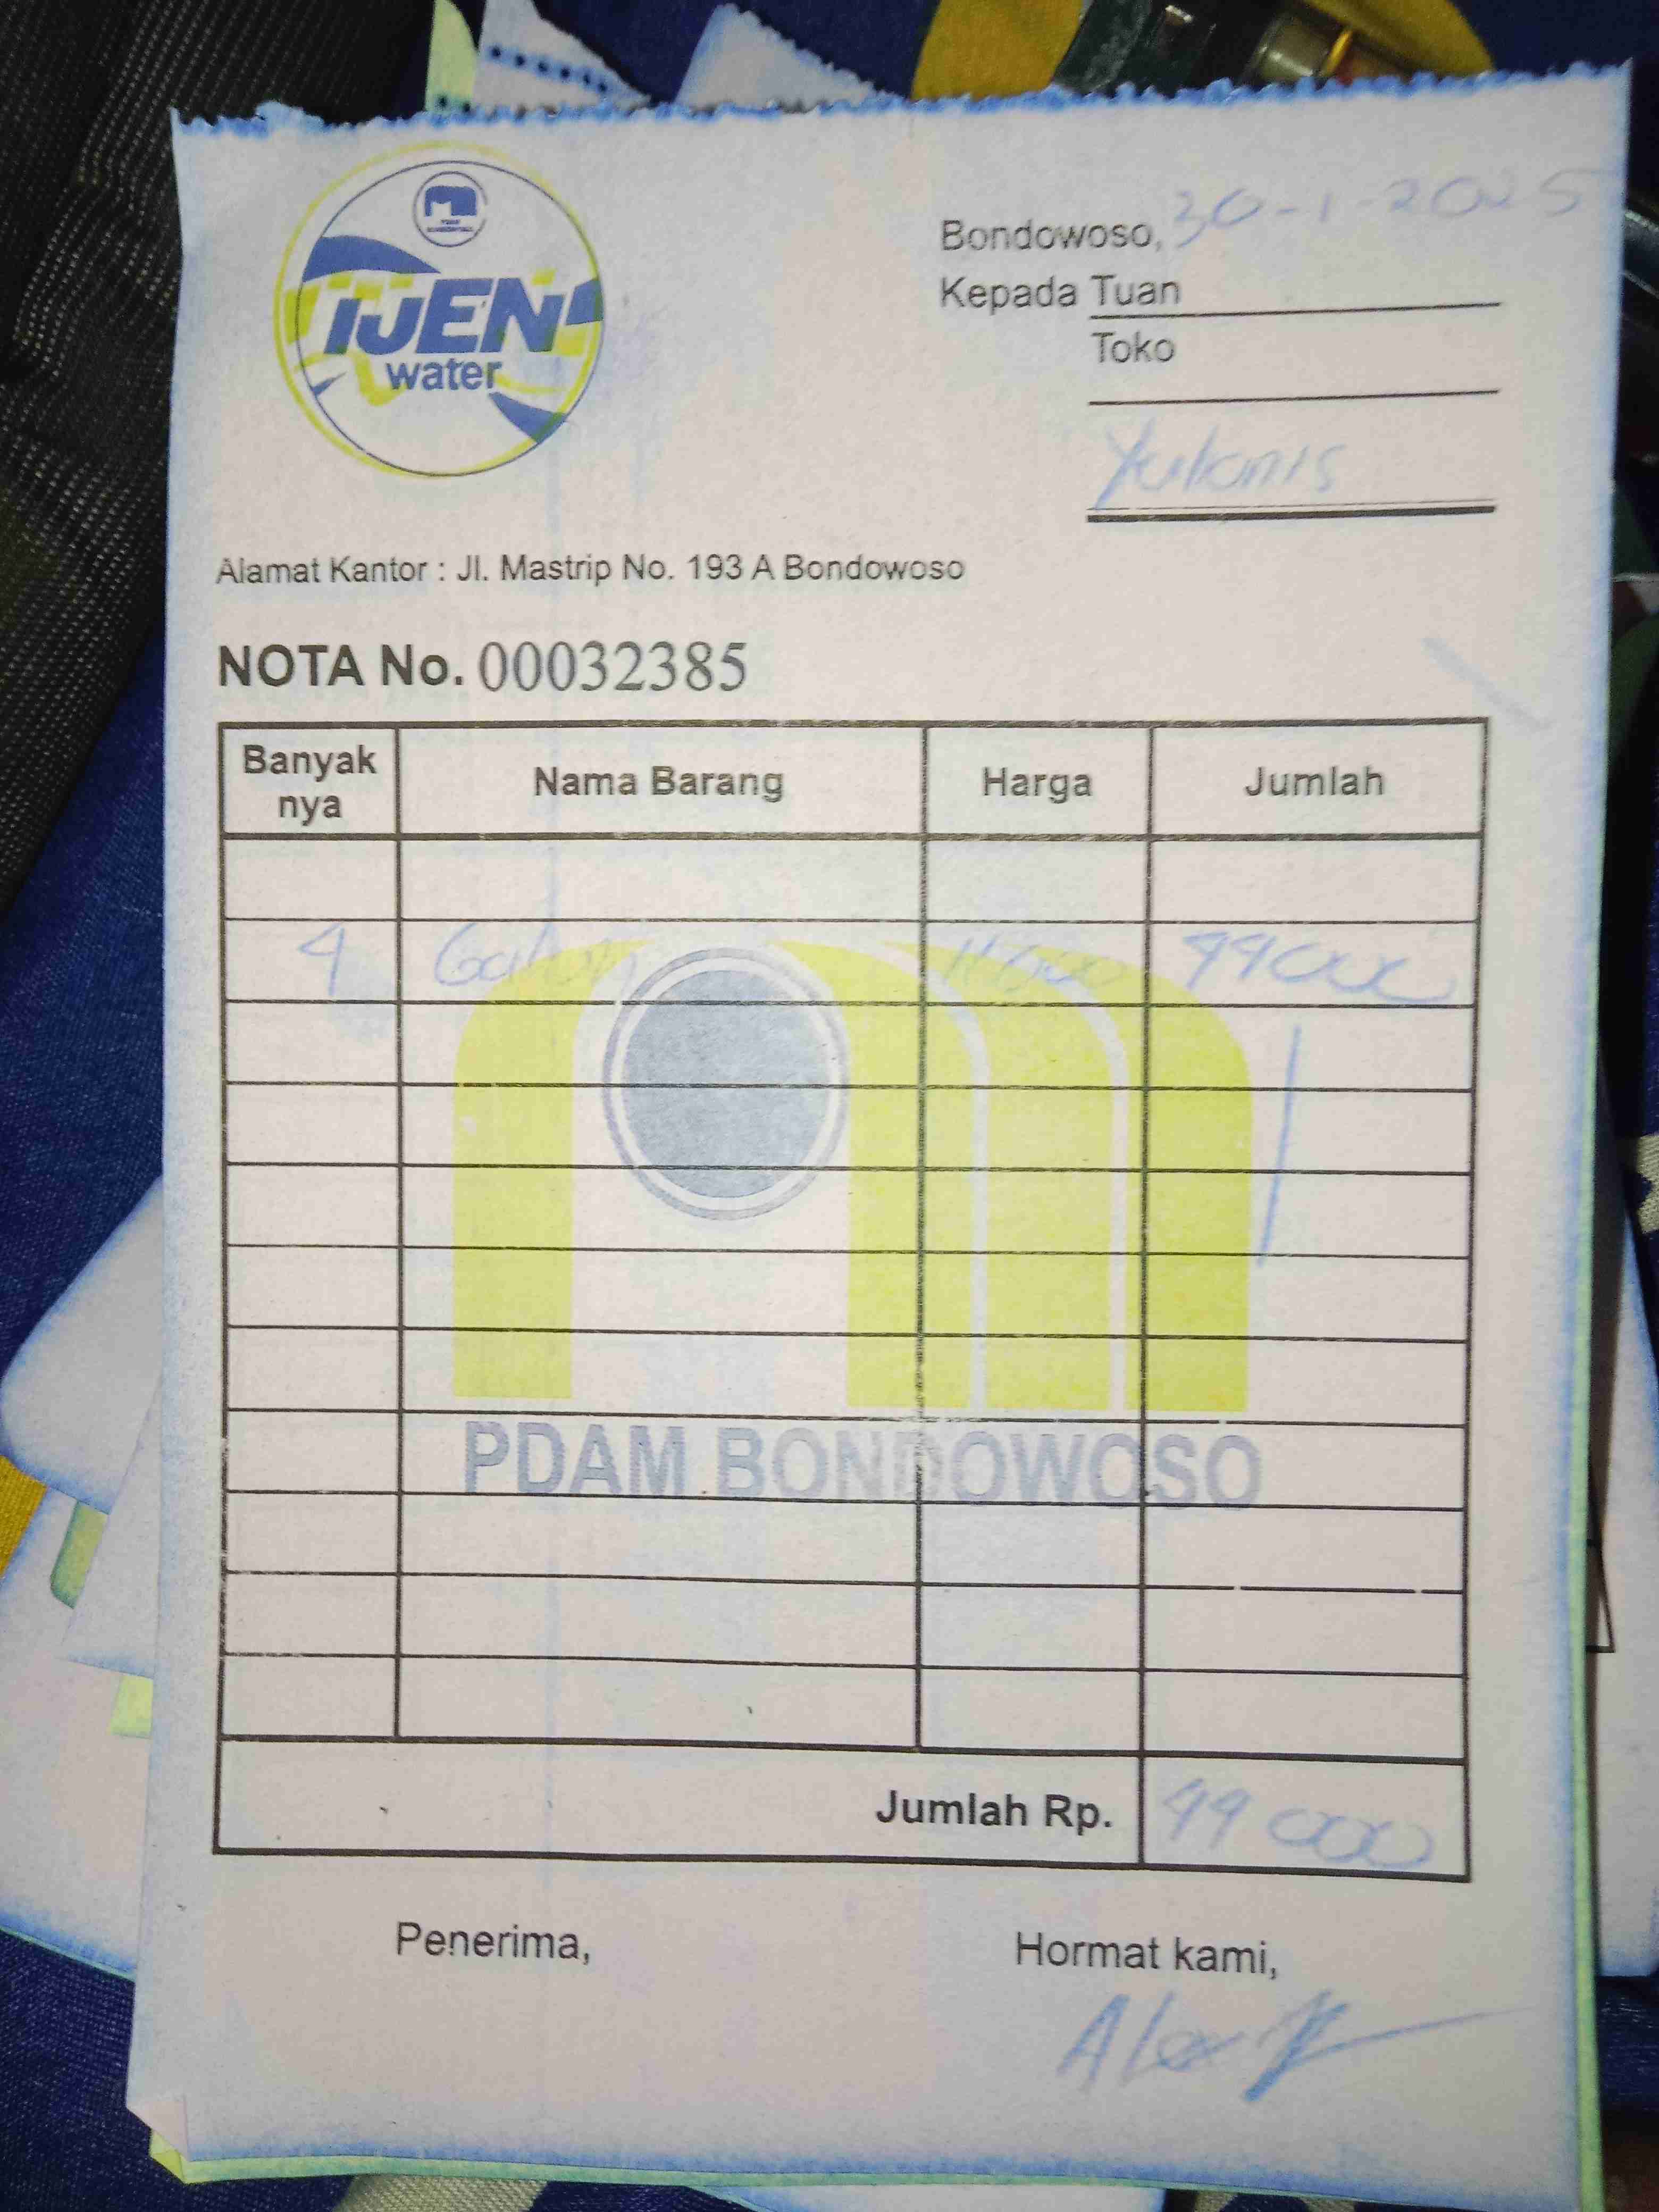 IJEN
water
Bondowoso, 30-1-2025
Kepada Tuan
Toko
Yulianis
Alamat Kantor : Jl. Mastrip No. 193 A Bondowoso
NOTA No. 00032385
Banyak nya Nama Barang Harga Jumlah
4 Galon 11000 44000
PDAM BONDOWOSO
Jumlah Rp. 44 000
Penerima, Hormat kami,
Alex